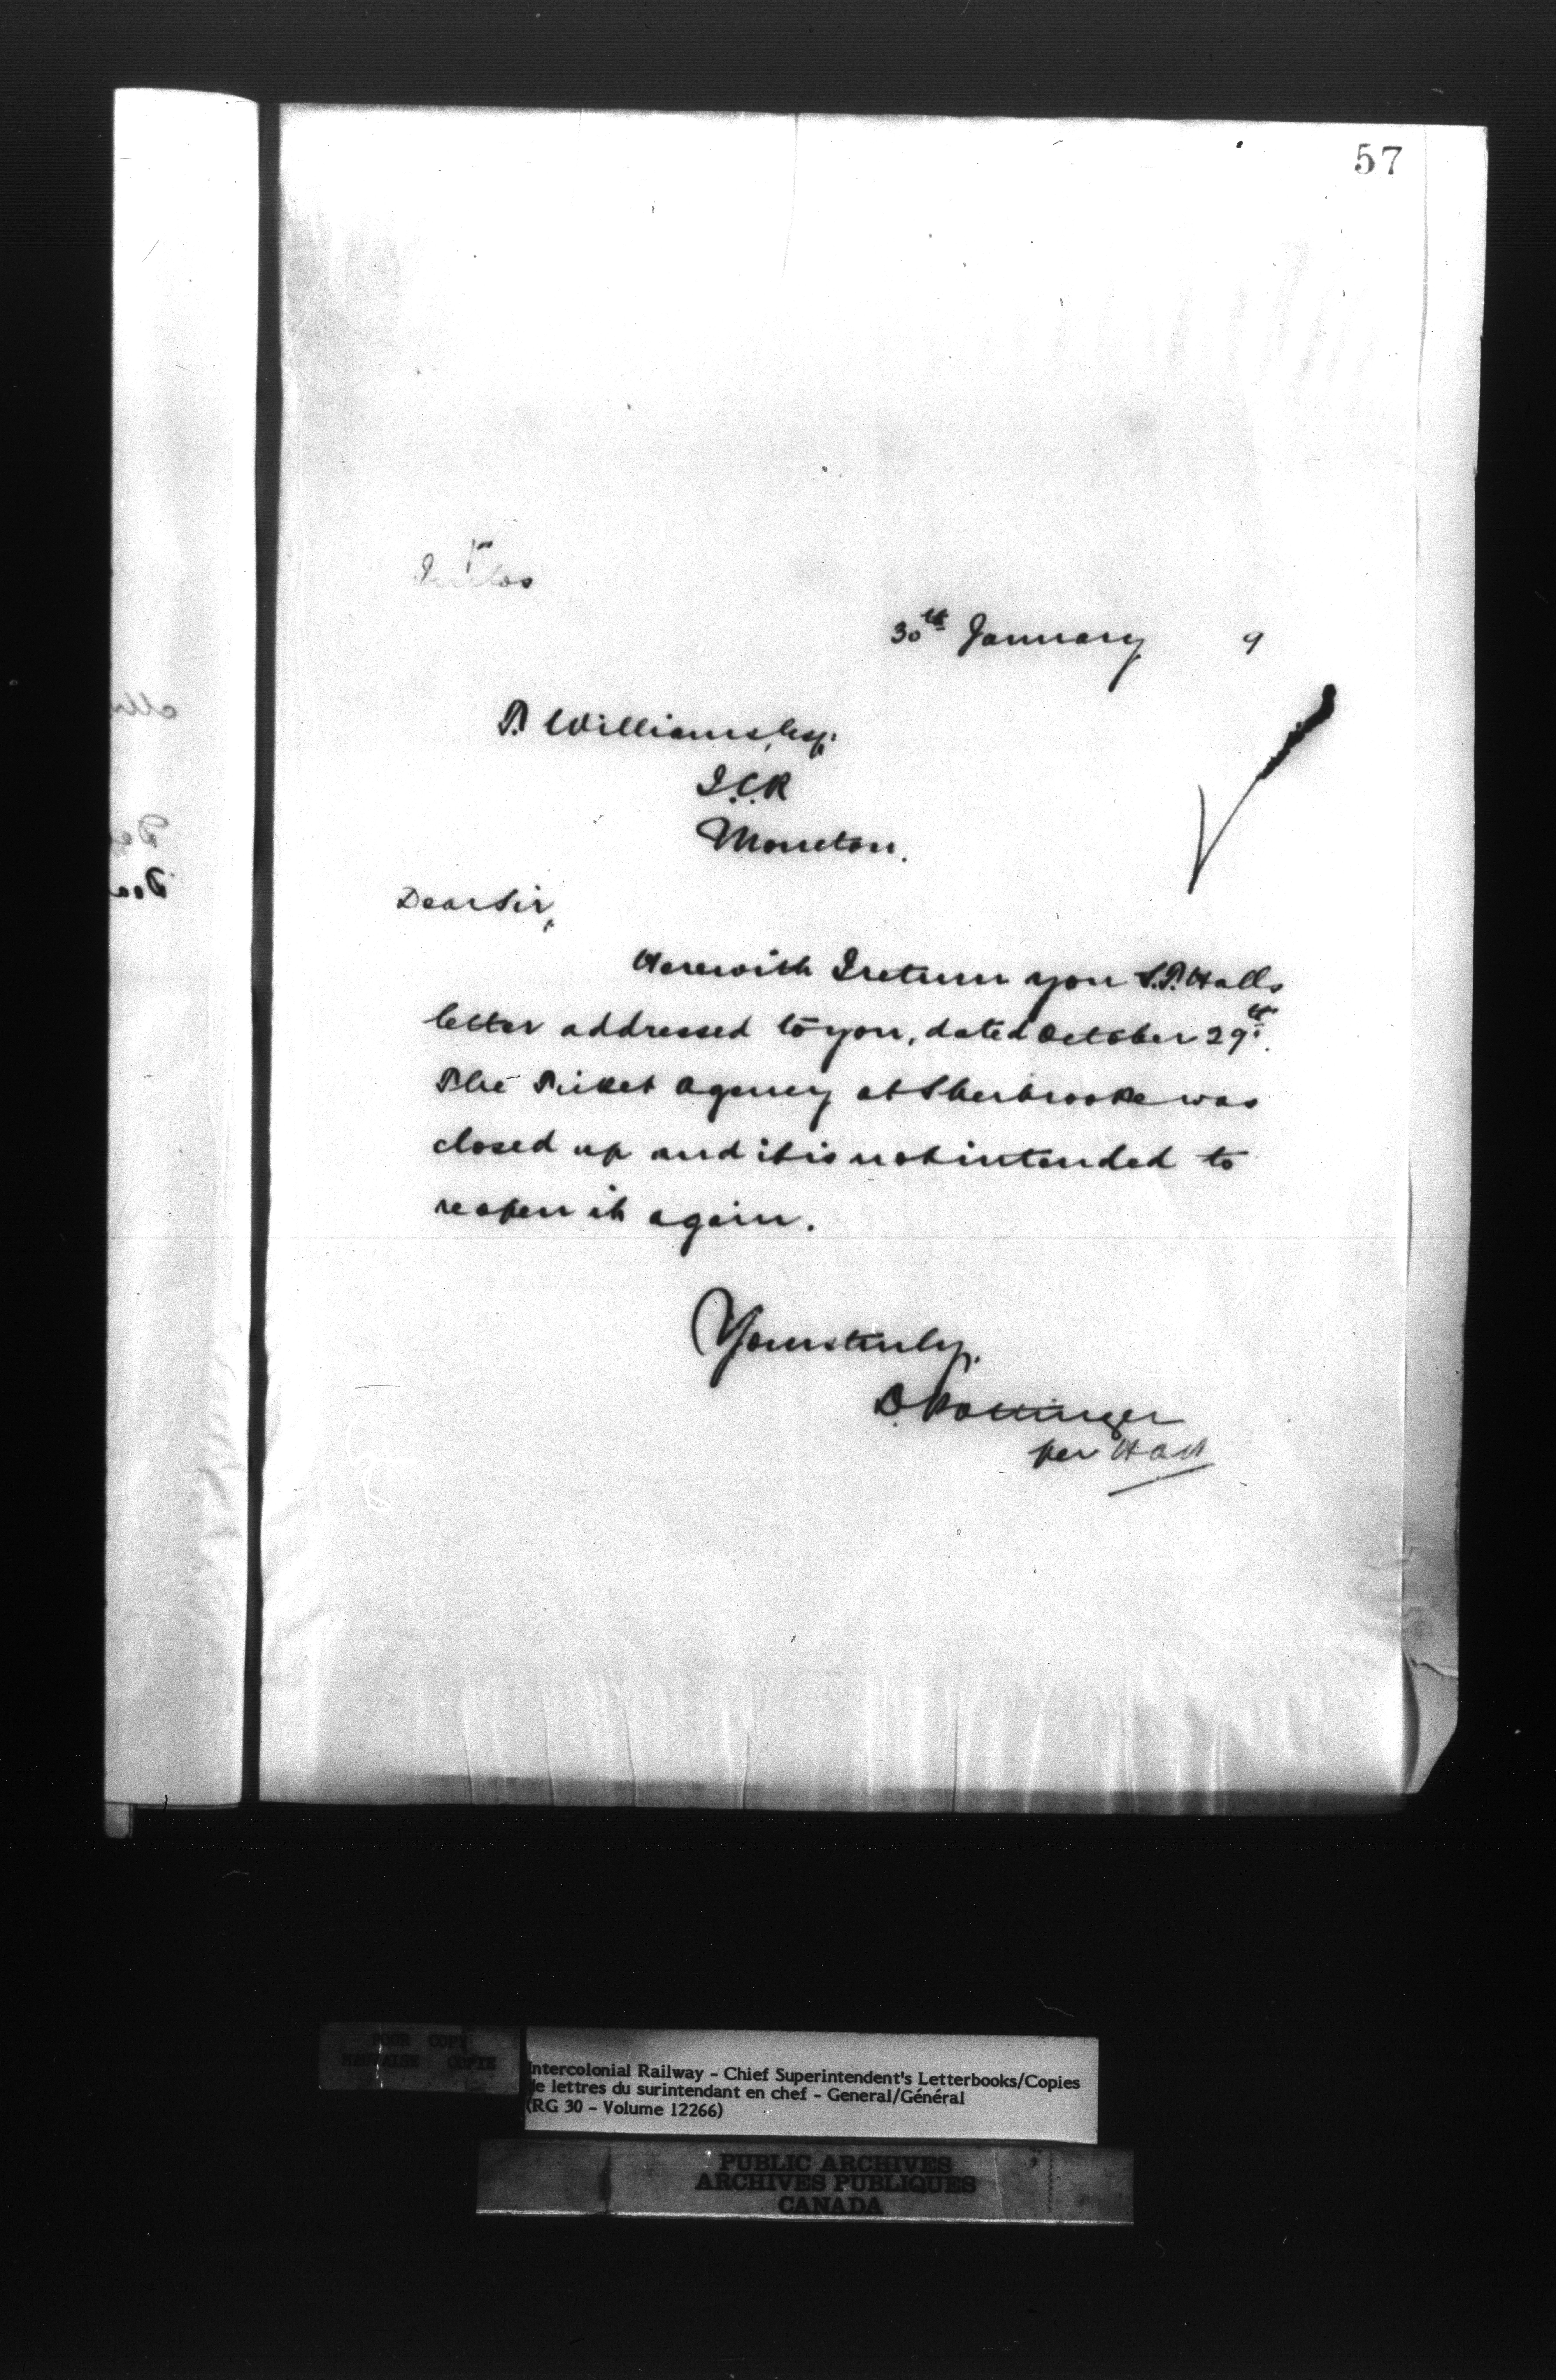 57
30th January 9
T. Williams, Esq.
I.C.R
Moncton.
Dear Sir,
Herewith I return you S.P. Halls
letter addressed to you, dated October 29th.
The Ticket Agency at Sherbrooke was
closed up and it is not intended to
reopen it again.
Yours truly,
D. Pottinger
per
POOR COPY
MAUVAISE COPIE
Intercolonial Railway - Chief Superintendent's Letterbooks/Copies
de lettres du surintendant en chef - General/Général
(RG 30 - Volume 12266)
PUBLIC ARCHIVES
ARCHIVES PUBLIQUES
CANADA